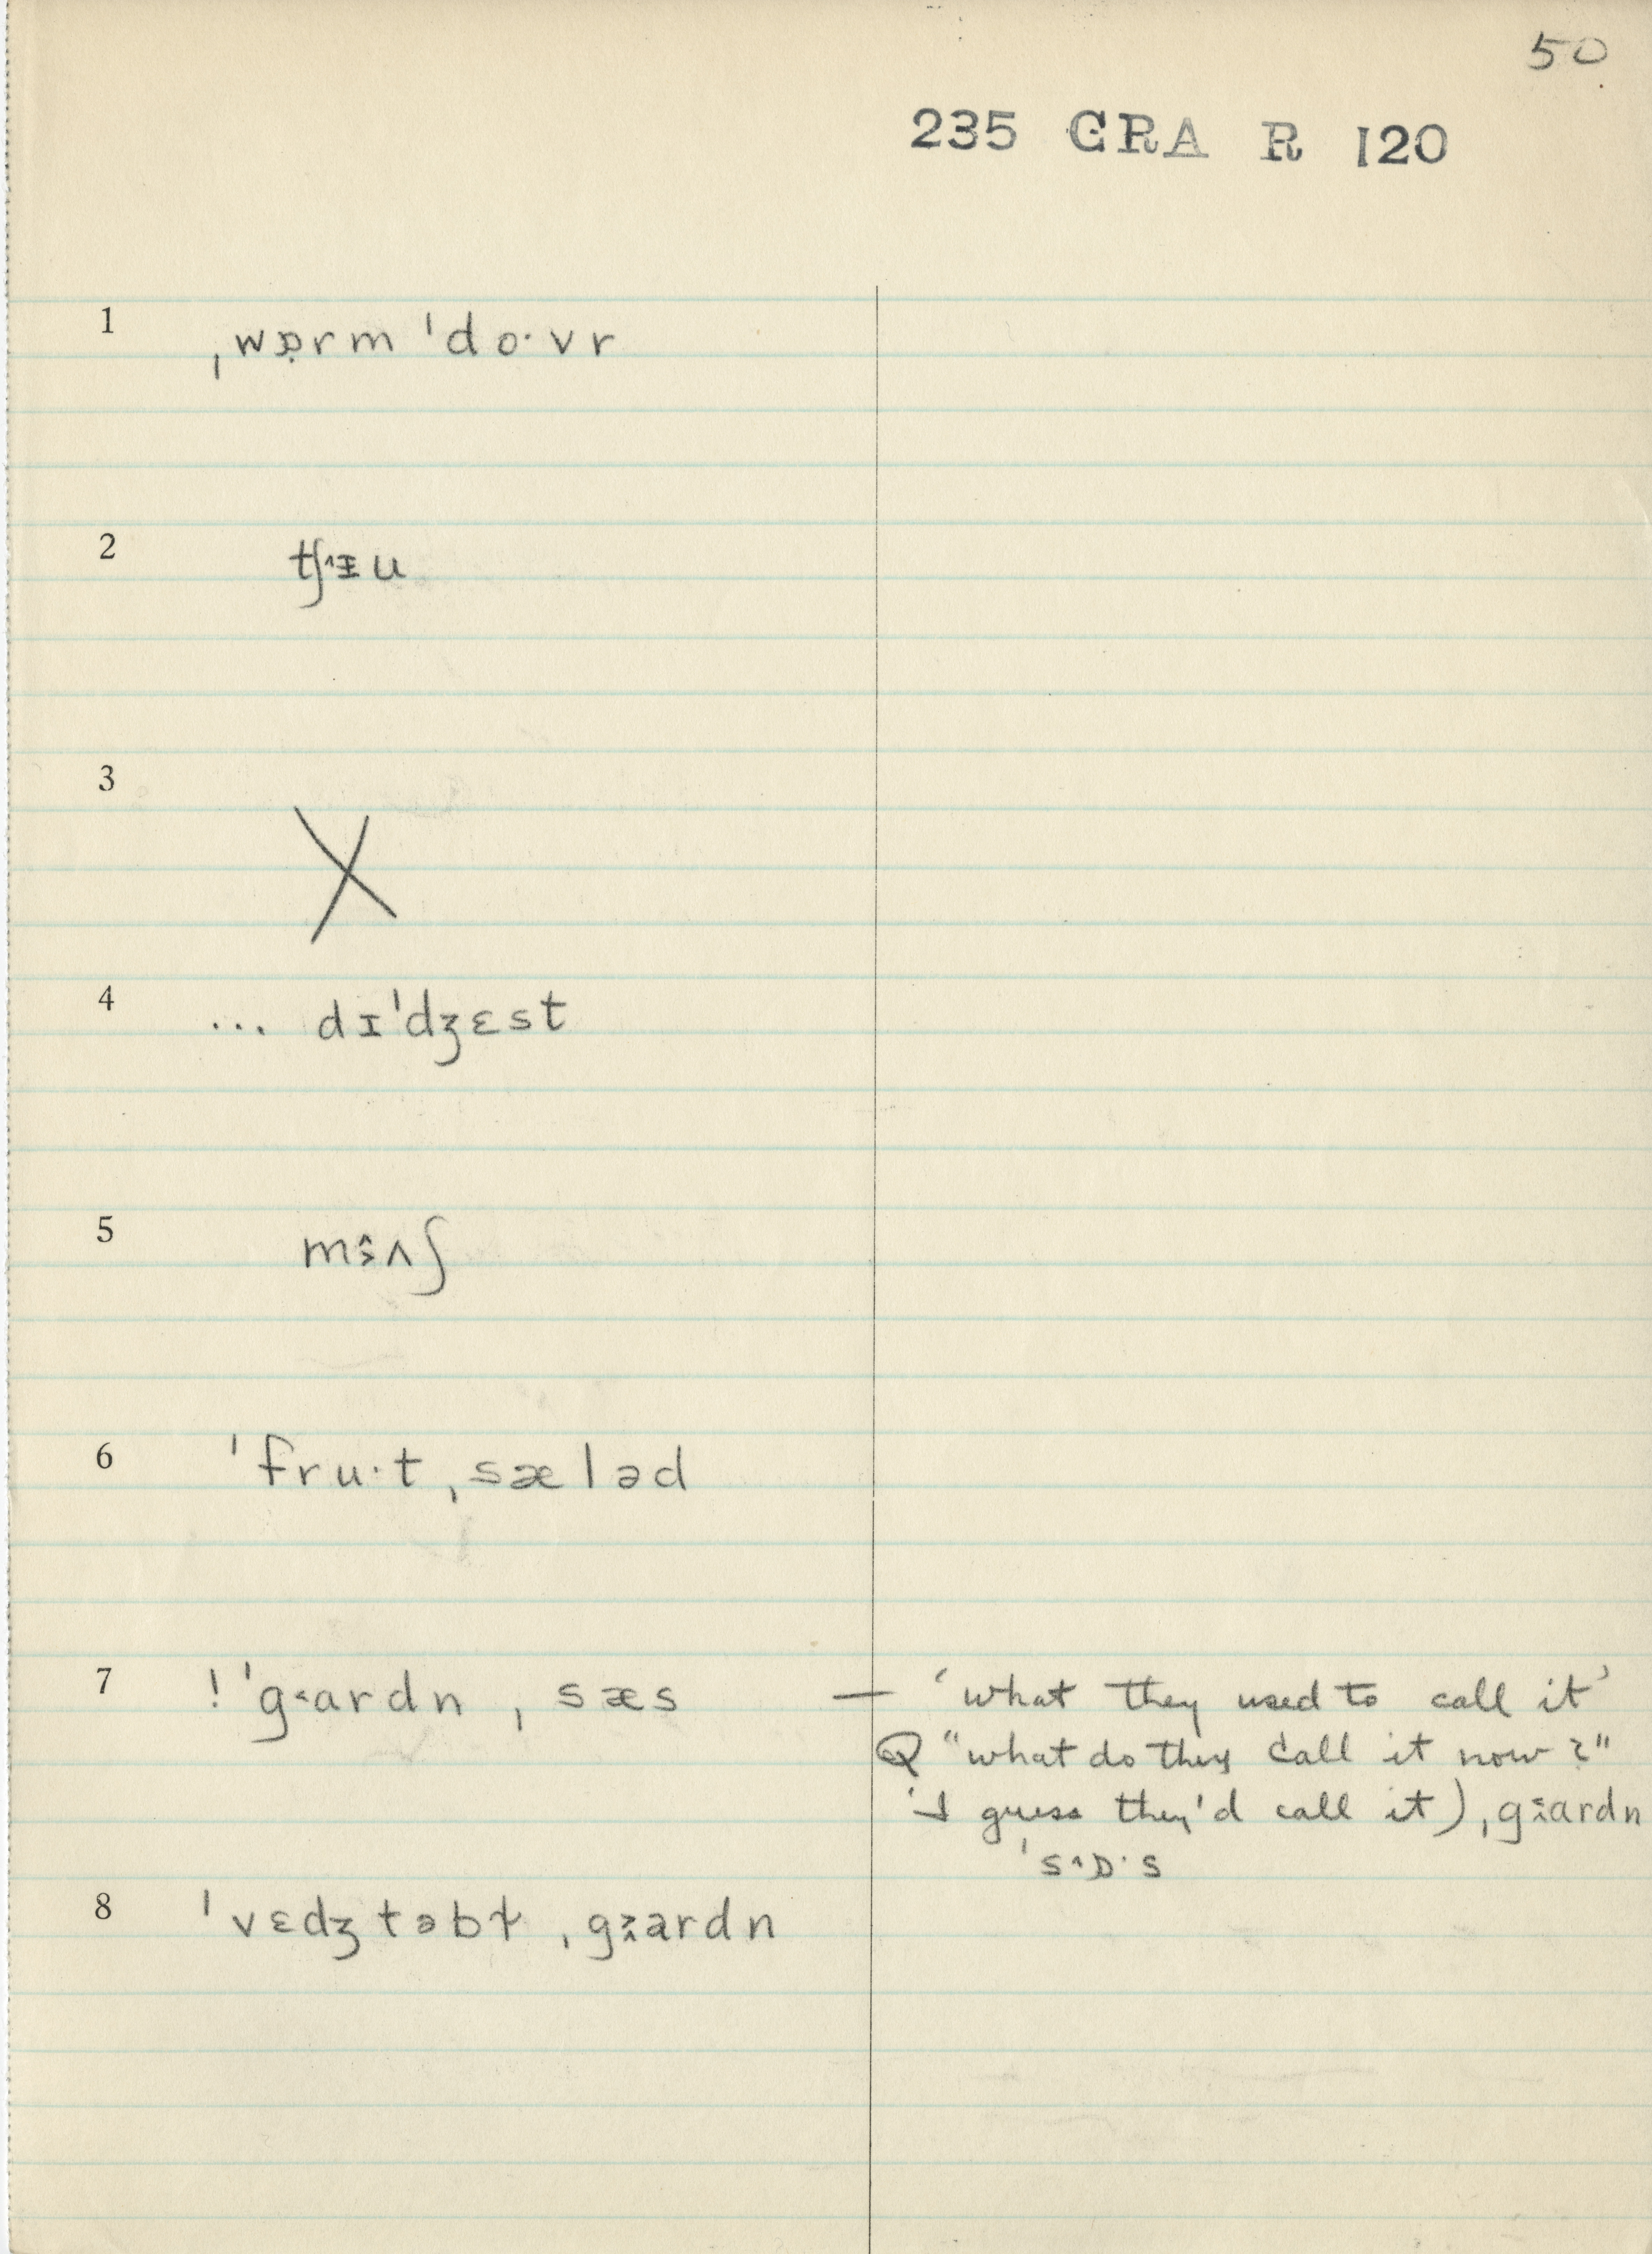 50
235 GRA R 120
1 ˌwɒ̣rm ˈdo·vr
2 tʃ˄ᵻu
3 X
4 ... dɪˈdʒɛst
5 mɜ˄ʌʃ
6 ˈfru·t ˌsæləd
7 ! ˈg˂ardn ˌsæs — ‘what they used to call it’
Q “what do they call it now?”
‘I guess they'd call it) ˌg˂ardn
ˈs˄ɒ·s
8 ˈvɛdʒtəbɫ ˌg˃ardn